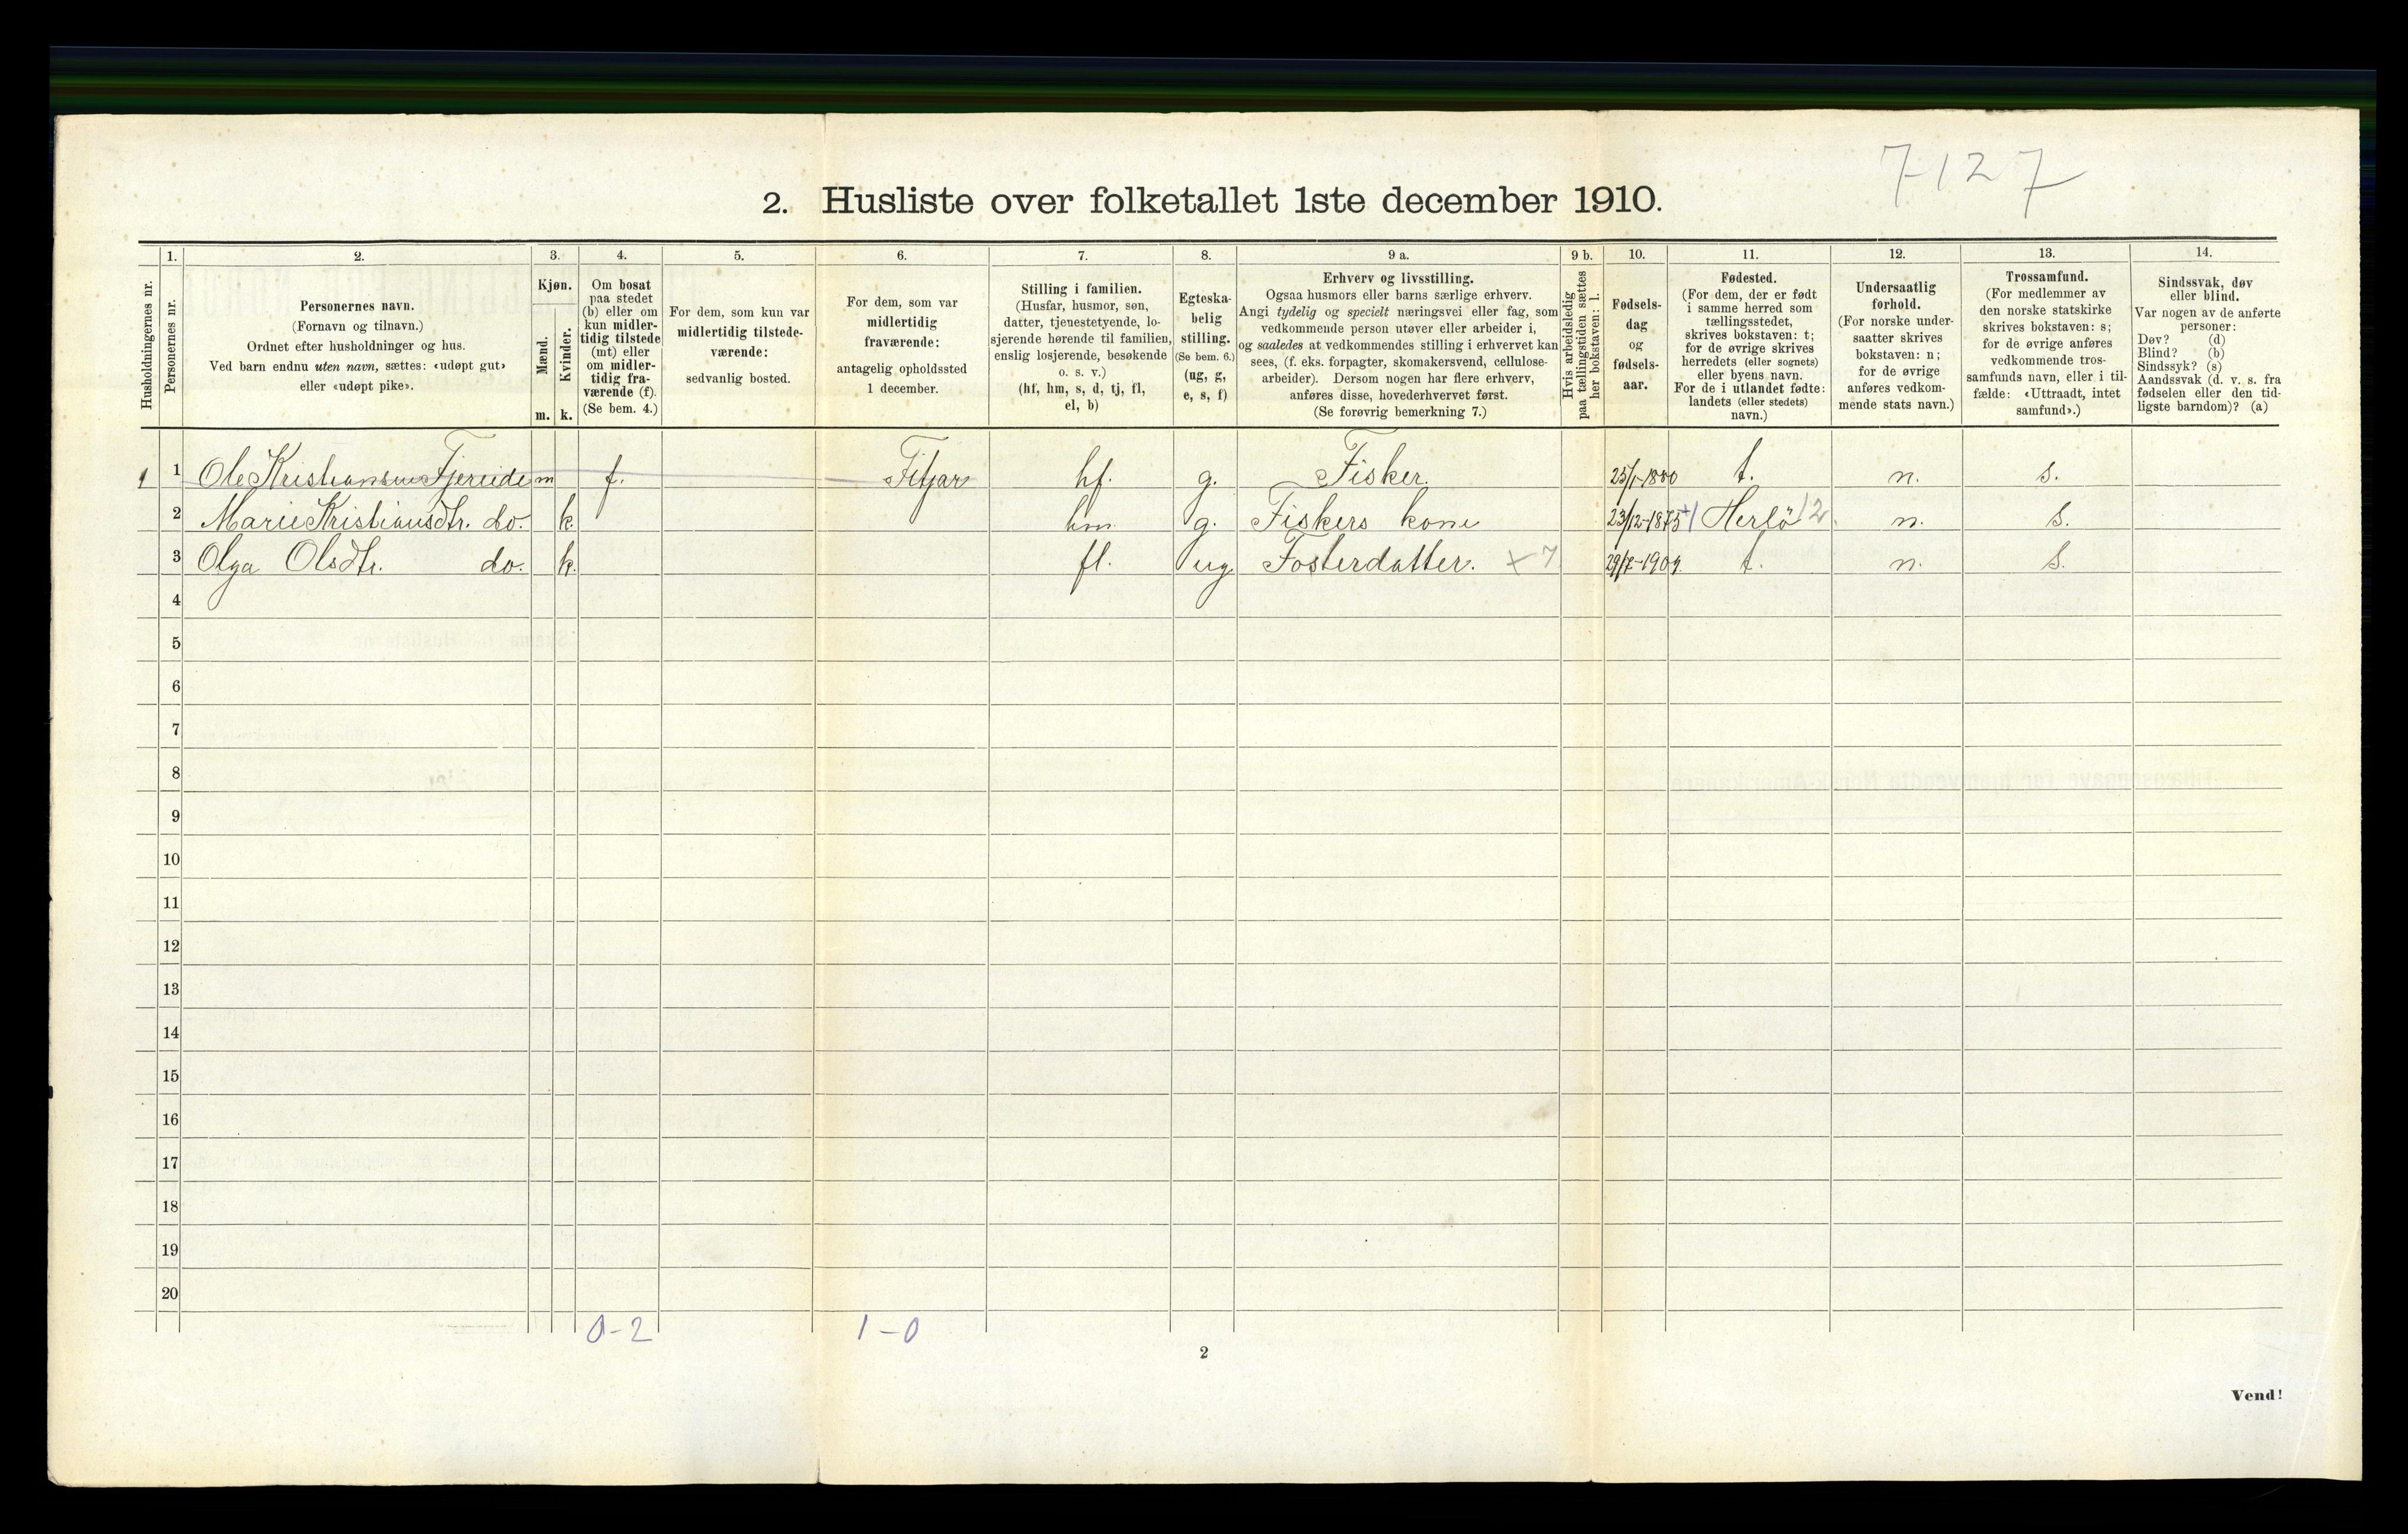 7127
2. Husliste over folketallet 1ste december 1910.
Husholdningernes nr.
1.
Personernes nr.
2.
Personernes navn.
(Fornavn og tilnavn.)
Ordnet efter husholdninger og hus.
Ved barn endnu uten navn, sættes: «udøpt gut»
eller «udøpt pike».
3.
Kjøn.
Mænd.
m.
Kvinder.
k.
4.
Om bosat
paa stedet
(b) eller om
kun midler-
tidig tilstede
(mt) eller
om midler-
tidig fra-
værende (f).
(Se bem. 4.)
5.
For dem, som kun var
midlertidig tilstede-
værende:
sedvanlig bosted.
6.
For dem, som var
midlertidig
fraværende:
antagelig opholdssted
1 december.
7.
Stilling i familien.
(Husfar, husmor, søn,
datter, tjenestetyende, lo-
sjerende hørende til familien,
enslig losjerende, besøkende
o. s. v.)
(hf, hm, s, d, tj, fl,
el, b)
8.
Egteska-
belig
stilling.
(Se bem. 6.)
(ug, g,
e, s, f)
9 a.
Erhverv og livsstilling.
Ogsaa husmors eller barns særlige erhverv.
Angi tydelig og specielt næringsvei eller fag, som
vedkommende person utøver eller arbeider i,
og saaledes at vedkommendes stilling i erhvervet kan
sees, (f. eks. forpagter, skomakersvend, cellulose-
arbeider). Dersom nogen har flere erhverv,
anføres disse, hovederhvervet først.
(Se forøvrig bemerkning 7.)
9 b.
Hvis arbeidsledig
paa tællingstiden sættes
her bokstaven: l.
10.
Fødsels-
dag
og
fødsels-
aar.
11.
Fødested.
(For dem, der er født
i samme herred som
tællingsstedet,
skrives bokstaven: t;
for de øvrige skrives
herredets (eller sognets)
eller byens navn.
For de i utlandet fødte:
landets (eller stedets)
navn.)
12.
Undersaatlig
forhold.
(For norske under-
saatter skrives
bokstaven: n;
for de øvrige
anføres vedkom-
mende stats navn.)
13.
Trossamfund.
(For medlemmer av
den norske statskirke
skrives bokstaven: s;
for de øvrige anføres
vedkommende tros-
samfunds navn, eller i til-
fælde: «Uttraadt, intet
samfund».)
14.
Sindssvak, døv
eller blind.
Var nogen av de anførte
personer:
Døv? (d)
Blind? (b)
Sindssyk? (s)
Aandssvak (d. v. s. fra
fødselen eller den tid-
ligste barndom)? (a)
1 1 Ole Kristiansen Fjereide m f. Fitjar hf. g. Fisker. 25/1-1880 t. n. s.
2 Marie Kristiansdtr. do. k. hm g. Fiskers kone 23/12-1875 Herlö 12 n. s.
3 Olga Olsdtr. do. k. fl. ug Fosterdatter. x7 29/7-1909. t. n. s.
4
5
6
7
8
9
10
11
12
13
14
15
16
17
18
19
20
0-2 1-0
2
Vend!